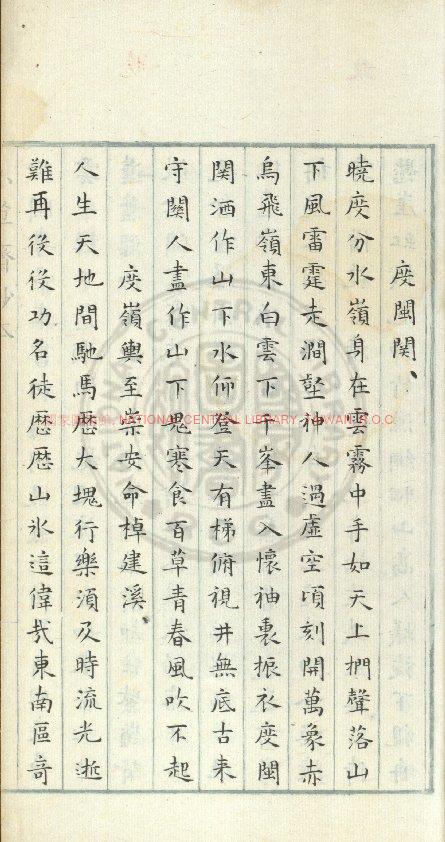 度閩関
曉度分水嶺身在雲霧中手如天上捫聲落山
下風雷霆走澗壑神人過虛空頃刻開萬象赤
烏飛嶺東白雲下千峯盡入懷袖裏振衣度閩
関洒作山下水仰登天有梯俯視井無底古来
守關人盡作山下鬼寒食百草青春風吹不起
度嶺輿至崇安命棹建溪
人生天地間馳馬歷大塊行樂須及時流光逝
難再役役功名徒歷歷山水這偉哉東南區奇
國家圖書館 NATIONAL CENTRAL LIBRARY, TAIWAN, R.O.C